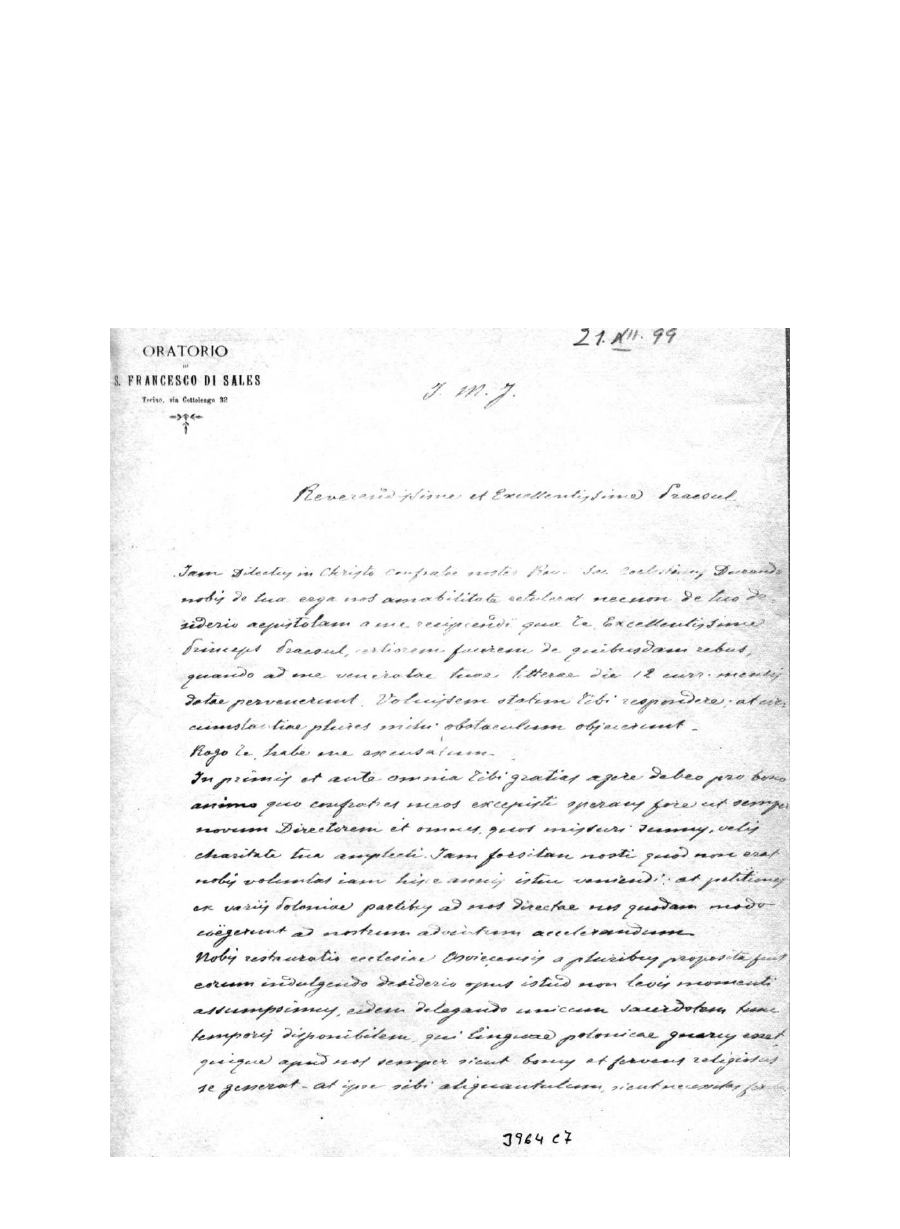 21. XII. 99
ORATORIO
DI
S. FRANCESCO DI SALES
Torino, via Cottolengo 32
J. M. J.
Reverendissime et Excellentissime Praesul
Jam Dilectus in Christo confrater noster Rev. Sac. Coelestinus Durando
nobis de tua erga nos amabilitate retulerat necnon de tuo de-
siderio aepistolam a me recipiendi qua Te, Excellentissime
Princeps Praesul, certiorem facerem de quibusdam rebus,
quando ad me veneratae tuae litterae die 12 curr. mensis
datae pervenerunt. Voluissem statim Tibi respondere; at cir-
cumstantiae plures mihi obstaculum objecerunt.
Rogo Te, habe me excusatum.
In primis et ante omnia Tibi gratias agere debeo pro bono
animo quo confratres meos excepisti sperans fore ut semper
novum Directorem et omnes, quos missuri sumus, velis
charitate tua amplecti. Jam forsitan nosti quod non erat
nobis voluntas iam hisce annis istuc veniendi: at petitiones
ex variis Poloniae partibus ad nos directae nos quodam modo
coëgerunt ad nostrum adventum accelerandum.
Nobis restauratio ecclesiae Osviecensis a pluribus proposita fuit
eorum indulgendo desiderio opus istud non levis momenti
assumpsimus, eidem delegando unicum sacerdotem tunc
temporis disponibilem, qui linguae polonicae gnarus esset,
quique apud nos semper sicut bonus et fervens religiosus
se gesserat. At ipse sibi aliquantulum, sicut necessitas
3964 C7